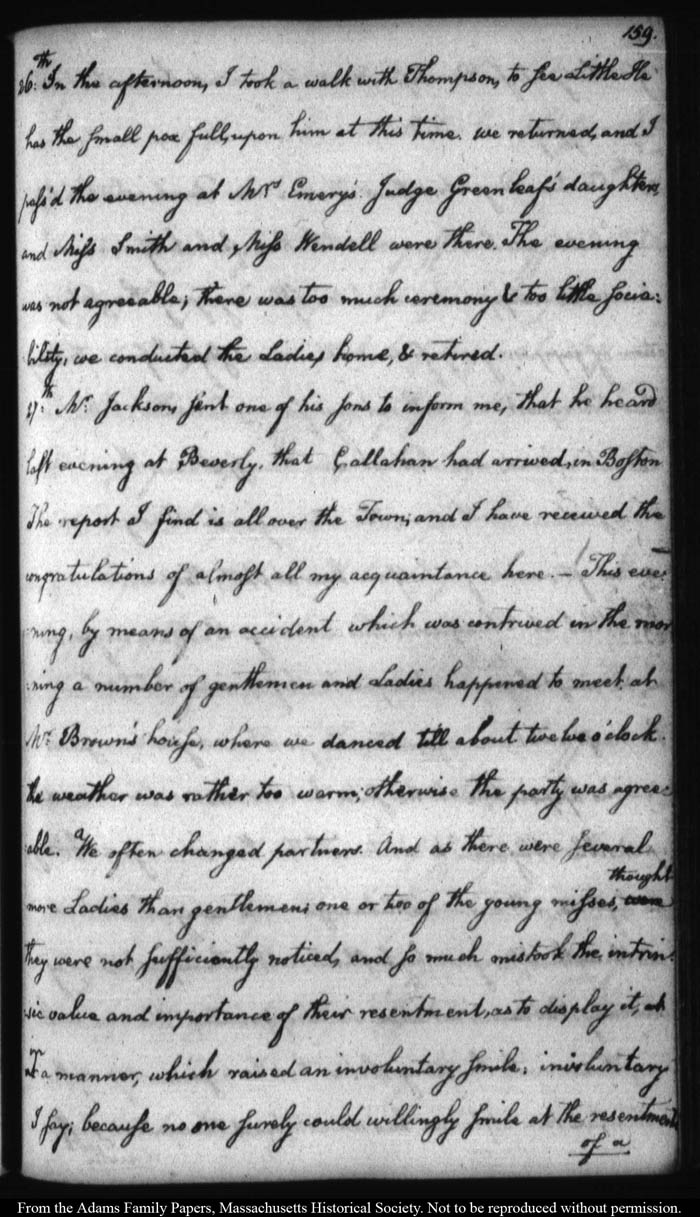 159.
26.th In the afternoon, I took a walk with Thompson, to see Little. He
has the small pox full, upon him at this time. we returned, and I
pass'd the evening at Mrs. Emery's. Judge Greenleaf's daughters,
and Miss Smith and Miss Wendell were there. The evening
was not agreeable; there was too much ceremony & too little socia:
bility, we conducted the Ladies home, & retired.
27.th Mr. Jackson, sent one of his sons to inform me, that he heard
last evening at Beverly, that Callahan had arrived, in Boston
The report I find is all over the Town; and I have received the
congratulations of almost all my acquaintance here. — This eve:
:ning, by means of an accident which was contrived in the mor
:ning a number of gentlemen and Ladies happened to meet, at
Mr. Brown's house, where we danced till about twelve o'clock.
the weather was rather too warm; otherwise the party was agree:
:able. We often changed partners. And as there were several
thought
more Ladies than gentlemen; one or two of the young misses, were
they were not sufficiently noticed, and so much mistook the intrin:
:sic value and importance of their resentment, as to display it,
in a manner, which raised an involuntary smile; involuntary
I say; because no one surely could willingly smile at the resentment
of a
From the Adams Family Papers, Massachusetts Historical Society. Not to be reproduced without permission.